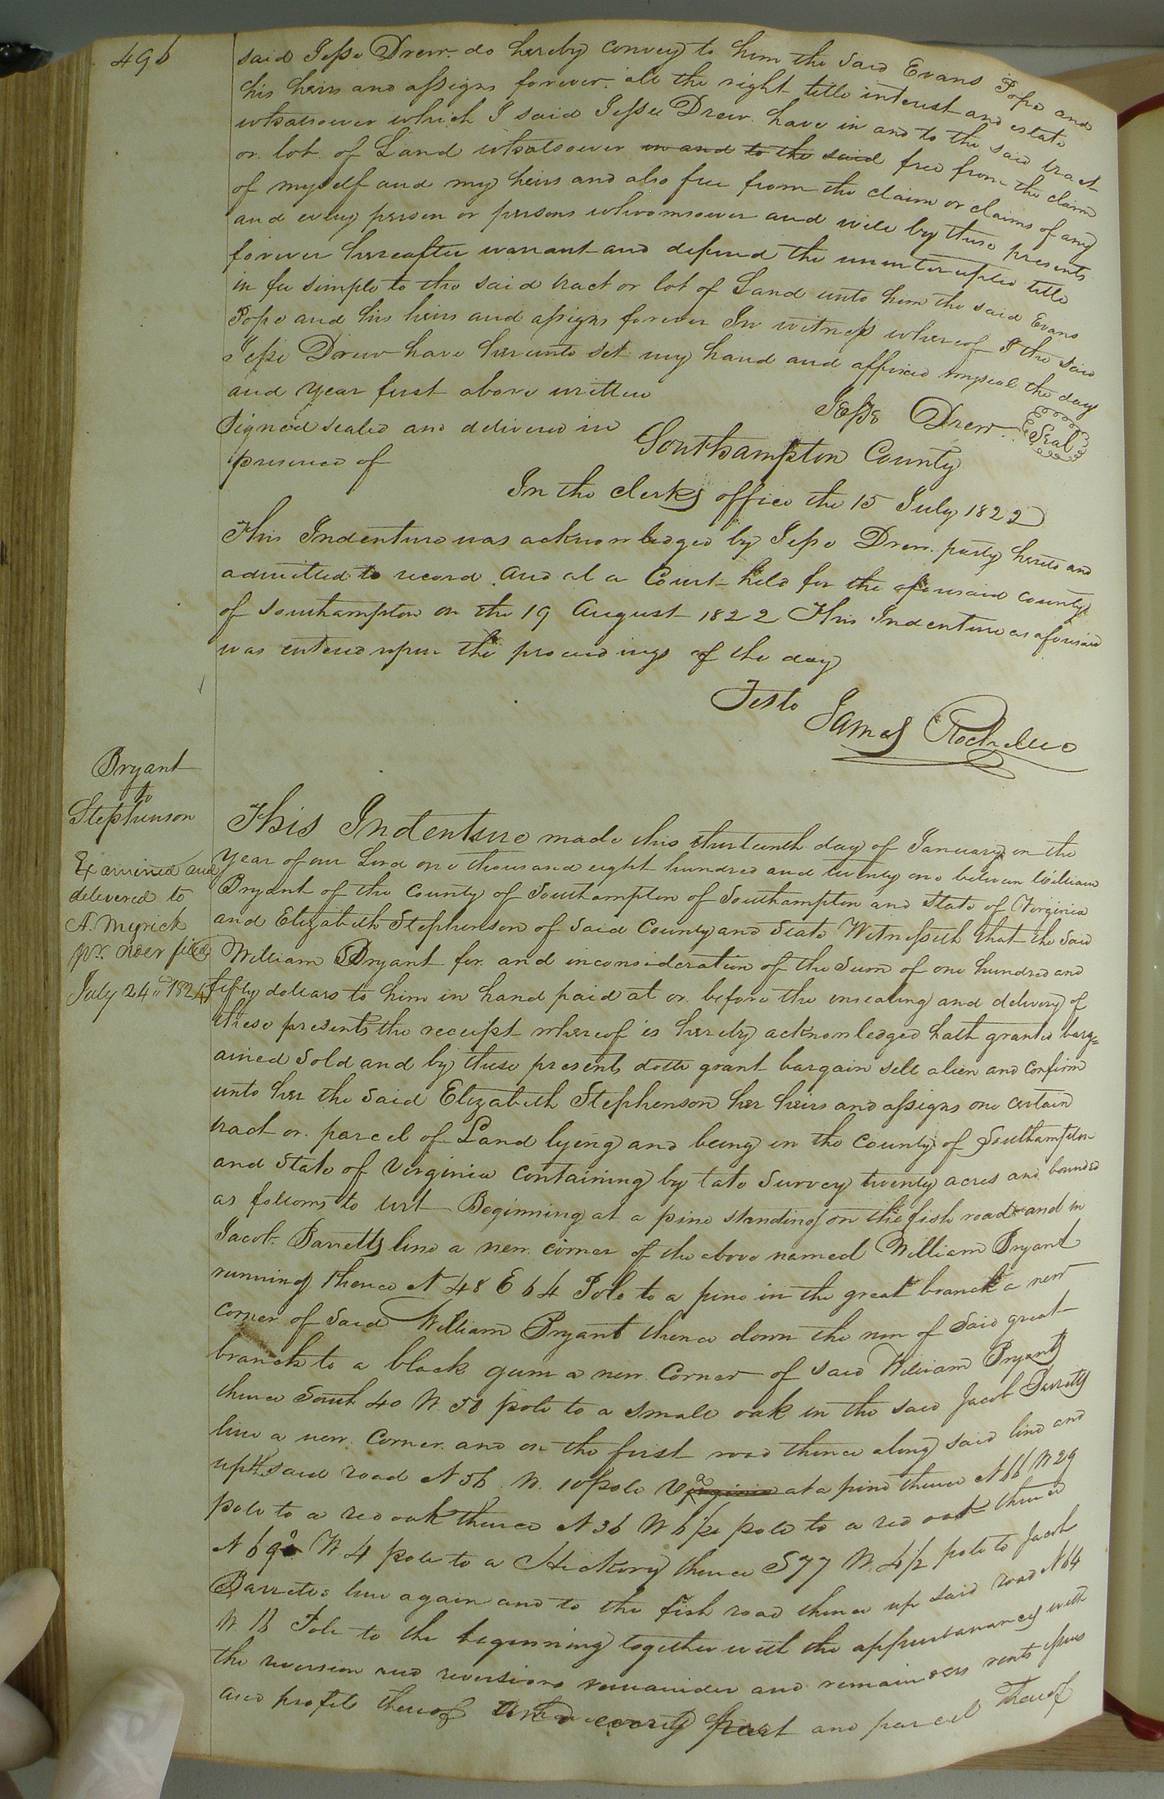 496
said Jesse Drew do hereby convey to him the said Evans Pope and
his heirs and assigns forever all the right title interest and estate
whatsoever which I said Jesse Drew have in and to the said tract
or lot of Land whatsoever in and to the said free from the claim
of myself and my heirs and also free from the claim or claims of any
and every person or persons whomsoever and will by these presents
forever hereafter warrant and defend the uninterupted title
in fee simple to the said tract or lot of Land unto him the said Evans
Pope and his heirs and assigns forever In witness whereof I the said
Jesse Drew have hereunto set my hand and affixed my seal the day
and year first above written
Jesse Drew Seal
Signed sealed and delivered in
presence of
Southampton County
In the clerks office the 15 July 1822
This Indenture was acknowledged by Jesse Drew party hereto and
admitted to record And at a Court held for the aforesaid county
of Southampton on the 19 August 1822 This Indenture as aforesaid
was entered upon the proceedings of the day
Teste James Rochelle
Bryant
to
Stephenson
Examined and
delivered to
A. Myrick
pr. order filed
July 24th 1824
This Indenture made this thirteenth day of January in the
year of our Lord one thousand eight hundred and twenty one between William
Bryant of the County of Southampton of Southampton and State of Virginia
and Elizabeth Stephenson of Said County and State Witnesseth that the Said
William Bryant for and inconsideration of the Sum of one hundred and
fifty dollars to him in hand paid at or before the ensealing and delivery of
these presents the receipt whereof is hereby acknowledged hath granted barg=
ained Sold and by these presents doth grant bargain sell alien and Confirm
unto her the Said Elizabeth Stephenson her heirs and assigns one certain
tract or parcel of Land lying and being in the County of Southampton
and State of Virginia Containing by late Survey twenty acres and bounded
as follows to wit Beginning at a pine standing on the fish road and in
Jacob Barretts line a new corner of the above named William Bryant
running thence N 48 E 64 Pole to a pine in the great branch a new
corner of Said William Bryant thence down the run of Said great
branch to a black gum a new Corner of said William Bryants
thence South 40 W 58 pole to a small oak in the said Jacob Barretts
line a new Corner and on the first road thence along said line and
up th said road N 56 W. 10 pole at a pine thence N 66 W 29
pole to a red oak thence N 36 W 6 1/2 pole to a red oak thence
N 69 W 4 pole to a Hickory thence S 77 W 4 1/2 pole to Jacob
Barretts line again and to the fish road thence up said road N 64
W 18 Pole to the beginning together with the appurtenances with
the reversion and reversions remainder and remainders rents issues
and profits thereof And every part and parcel thereof